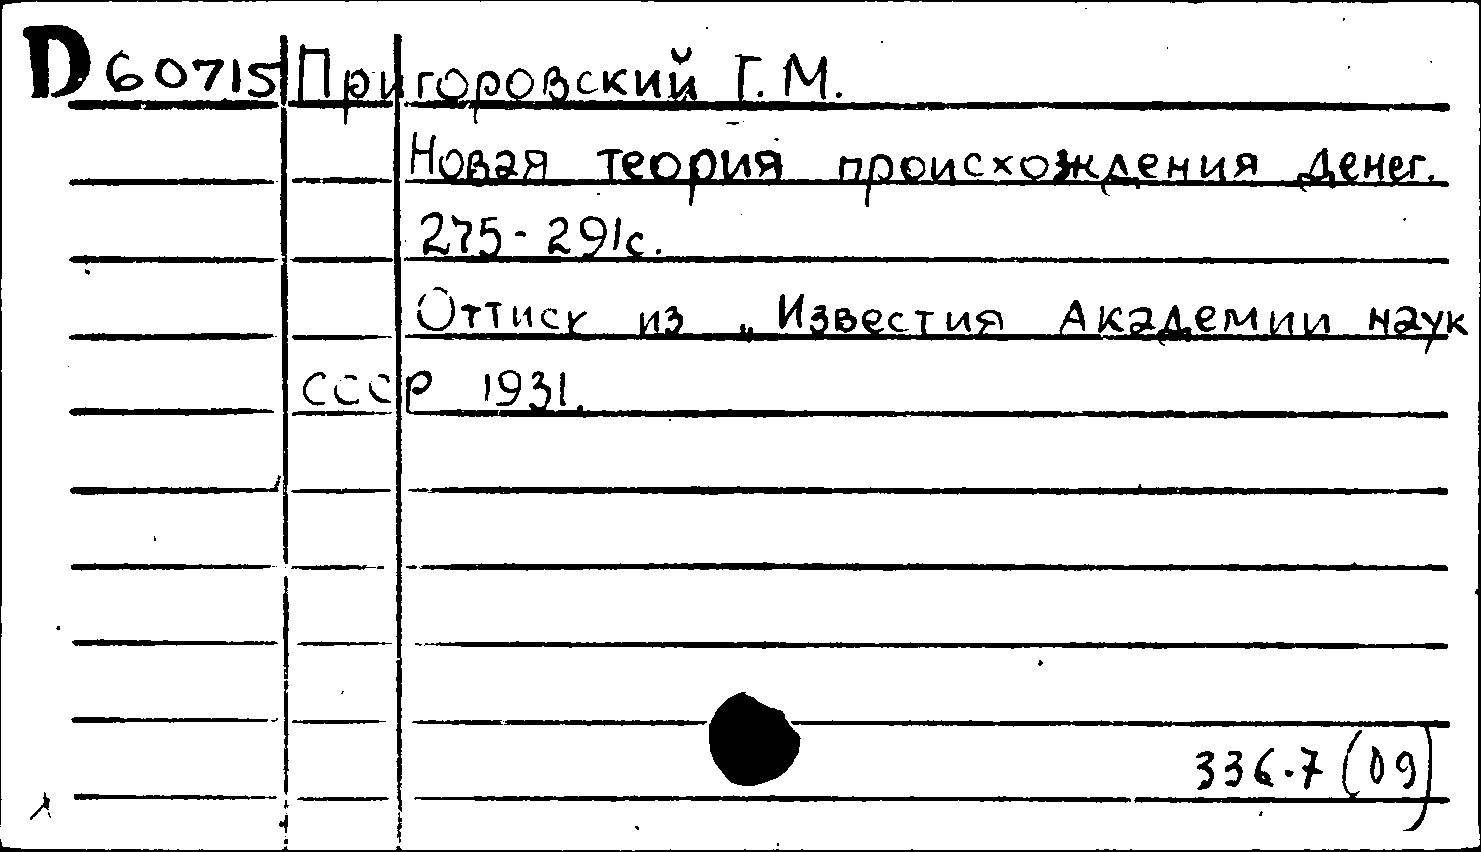 D60715 Пригоровский Г.М.
Новая теория происхождения денег.
275-291с.
Оттиск из „Известия Академии наук
СССР 1931.
336.7(09)